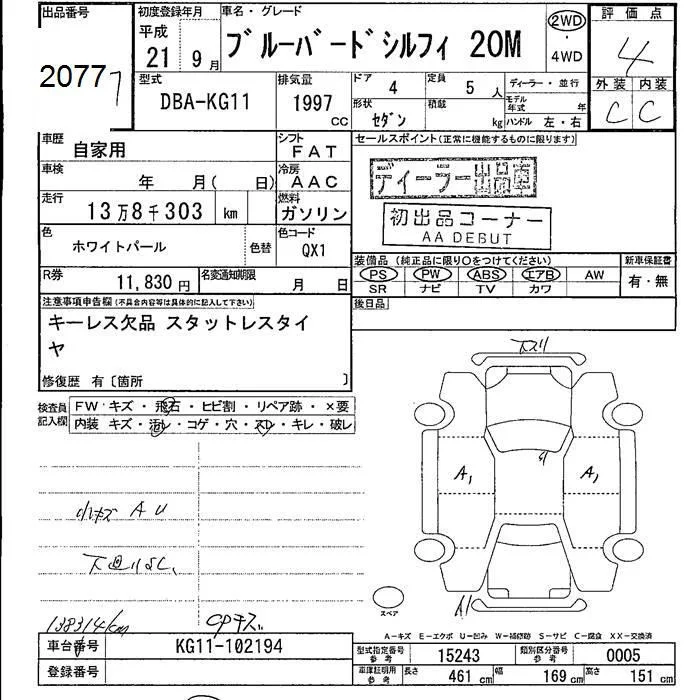 出品番号
20777
初度登録年月
平成
21 9月
車名・グレード
ブルーバードシルフィ 20M
2WD
・
4WD
評価点
4
外装 内装
C C
型式
DBA-KG11
排気量
1997
CC
ドア 4
定員 5 人
ディーラー・並行
形状 セダン
積載 kg
モデル年式 年
ハンドル 左・右
車歴
自家用
シフト
FAT
車検
年 月( 日)
冷房
AAC
走行
13万8千303 km
燃料
ガソリン
色
ホワイトパール
色替
色コード
QX1
R券
11,830 円
名変通知期限
月 日
セールスポイント(正常に機能するものに限ります)
ディーラー出品車
初出品コーナー
AA DEBUT
装備品 (純正品に限り○をつけてください)
新車保証書
PS PW ABS エアB AW
有・無
SR ナビ TV カワ
後日品
注意事項申告欄(不具合内容等は具体的に記入して下さい)
キーレス欠品 スタットレスタイ
ヤ
修復歴 有〔箇所 〕
検査員
記入欄
FW キズ・飛石・ヒビ割・リペア跡・×要
内装 キズ・汚レ・コゲ・穴・スレ・キレ・破レ
小キズ A U
下廻りSC、
138314km
下スリ
A1
A1
A1
スペア
A-キズ E-エクボ U-凹み W-補修跡 S-サビ C-腐食 XX-交換済
車台番号
KG11-102194
登録番号
型式指定番号
参考
15243
類別区分番号
参考
0005
車庫証明用
参考
長さ 461 cm
幅 169 cm
高さ 151 cm